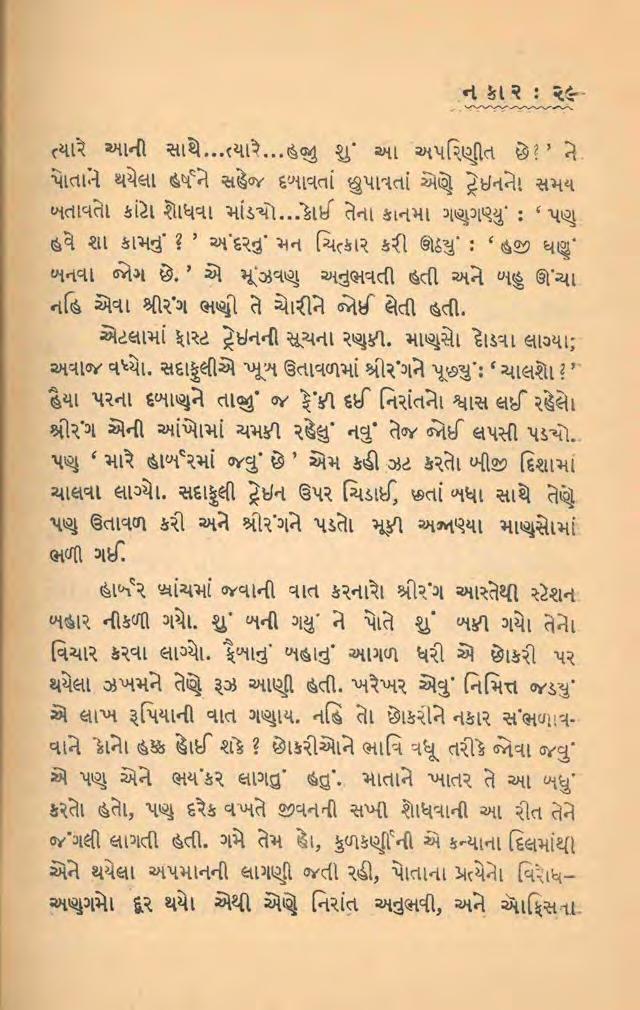 નકાર : ૨૯
ત્યારે આની સાથે...ત્યારે...હજી શું આ અપરિણીત છે?' ને
પોતાને થયેલા હર્ષને સહેજ દબાવતાં છુપાવતાં એણે ટ્રેઇનનો સમય
બતાવતો કાંટો શોધવા માંડ્યો...કોઈ તેના કાનમા ગણગણ્યું : ‘ પણ
હવે શા કામનું ? ’ અંદરનું મન ચિત્કાર કરી ઊઠ્યું : ‘ હજી ઘણું
બનવા જોગ છે. ’ એ મૂંઝવણ અનુભવતી હતી અને બહુ ઊંચા
નહિ એવા શ્રીરંગ ભણી તે ચોરીને જોઈ લેતી હતી.
એટલામાં ફાસ્ટ ટ્રેઇનની સૂચના રણકી. માણસો દોડવા લાગ્યા;
અવાજ વધ્યો. સદાફુલીએ ખૂબ ઉતાવળમાં શ્રીરંગને પૂછયું : ‘ ચાલશો ? ’
હૈયા પરના દબાણને તાજું જ ફેંકી દઈ નિરાંતનો શ્વાસ લઈ રહેલો
શ્રીરંગ એની આંખોમાં ચમકી રહેલું નવું તેજ જોઈ લપસી પડ્યો.
પણ ‘ મારે હાર્બરમાં જવું છે ’ એમ કહી ઝટ કરતો બીજી દિશામાં
ચાલવા લાગ્યો. સદાફુલી ટ્રેઇન ઉપર ચિડાઈ, છતાં બધા સાથે તેણે
પણ ઉતાવળ કરી અને શ્રીરંગને પડતો મૂકી અજાણ્યા માણસોમાં
ભળી ગઈ.
હાર્બર બ્રાંચમાં જવાની વાત કરનારો શ્રીરંગ આસ્તેથી સ્ટેશન
બહાર નીકળી ગયો. શું બની ગયું ને પોતે શું બકી ગયો તેનો
વિચાર કરવા લાગ્યો. ફૈબાનું બહાનું આગળ ધરી એ છોકરી પર
થયેલા ઝખમને તેણે રૂઝ આણી હતી. ખરેખર એવું નિમિત્ત જડયું
એ લાખ રૂપિયાની વાત ગણાય. નહિ તો છોકરીને નકાર સંભળાવ-
વાને કોનો હક્ક હોઈ શકે ? છોકરીઓને ભાવિ વધૂ તરીકે જોવા જવું
એ પણ એને ભયંકર લાગતું હતું. માતાને ખાતર તે આ બધું
કરતો હતો, પણ દરેક વખતે જીવનની સખી શોધવાની આ રીત તેને
જંગલી લાગતી હતી. ગમે તેમ હો, કુળકર્ણીની એ કન્યાના દિલમાંથી
એને થયેલા અપમાનની લાગણી જતી રહી, પોતાના પ્રત્યેનો વિરોધ–
અણગમો દૂર થયો એથી એણે નિરાંત અનુભવી, અને ઑફિસના